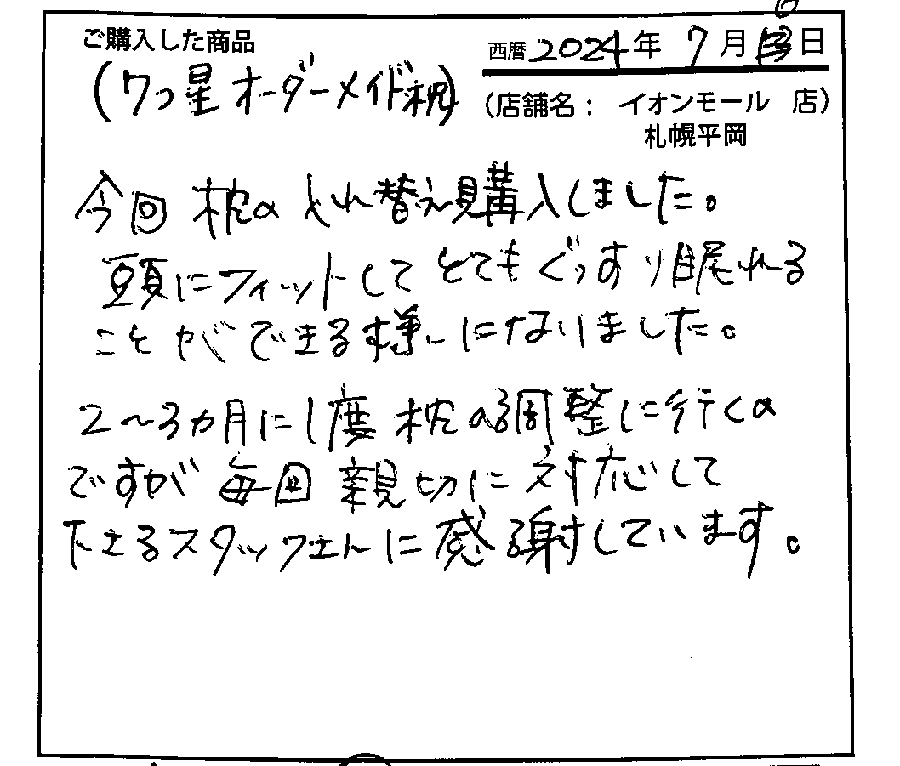 ご購入した商品
(7つ星オーダーメイド枕)
西暦2024年 7月 日
(店舗名: イオンモール 店)
札幌平岡
今回 枕の とれ替え購入しました。
頭にフィットしてとてもぐっすり眠れる
ことができる様になりました。
2〜3カ月に1度 枕の調整に行くの
ですが 毎回 親切に対応して
下さるスタッフさんに感謝しています。